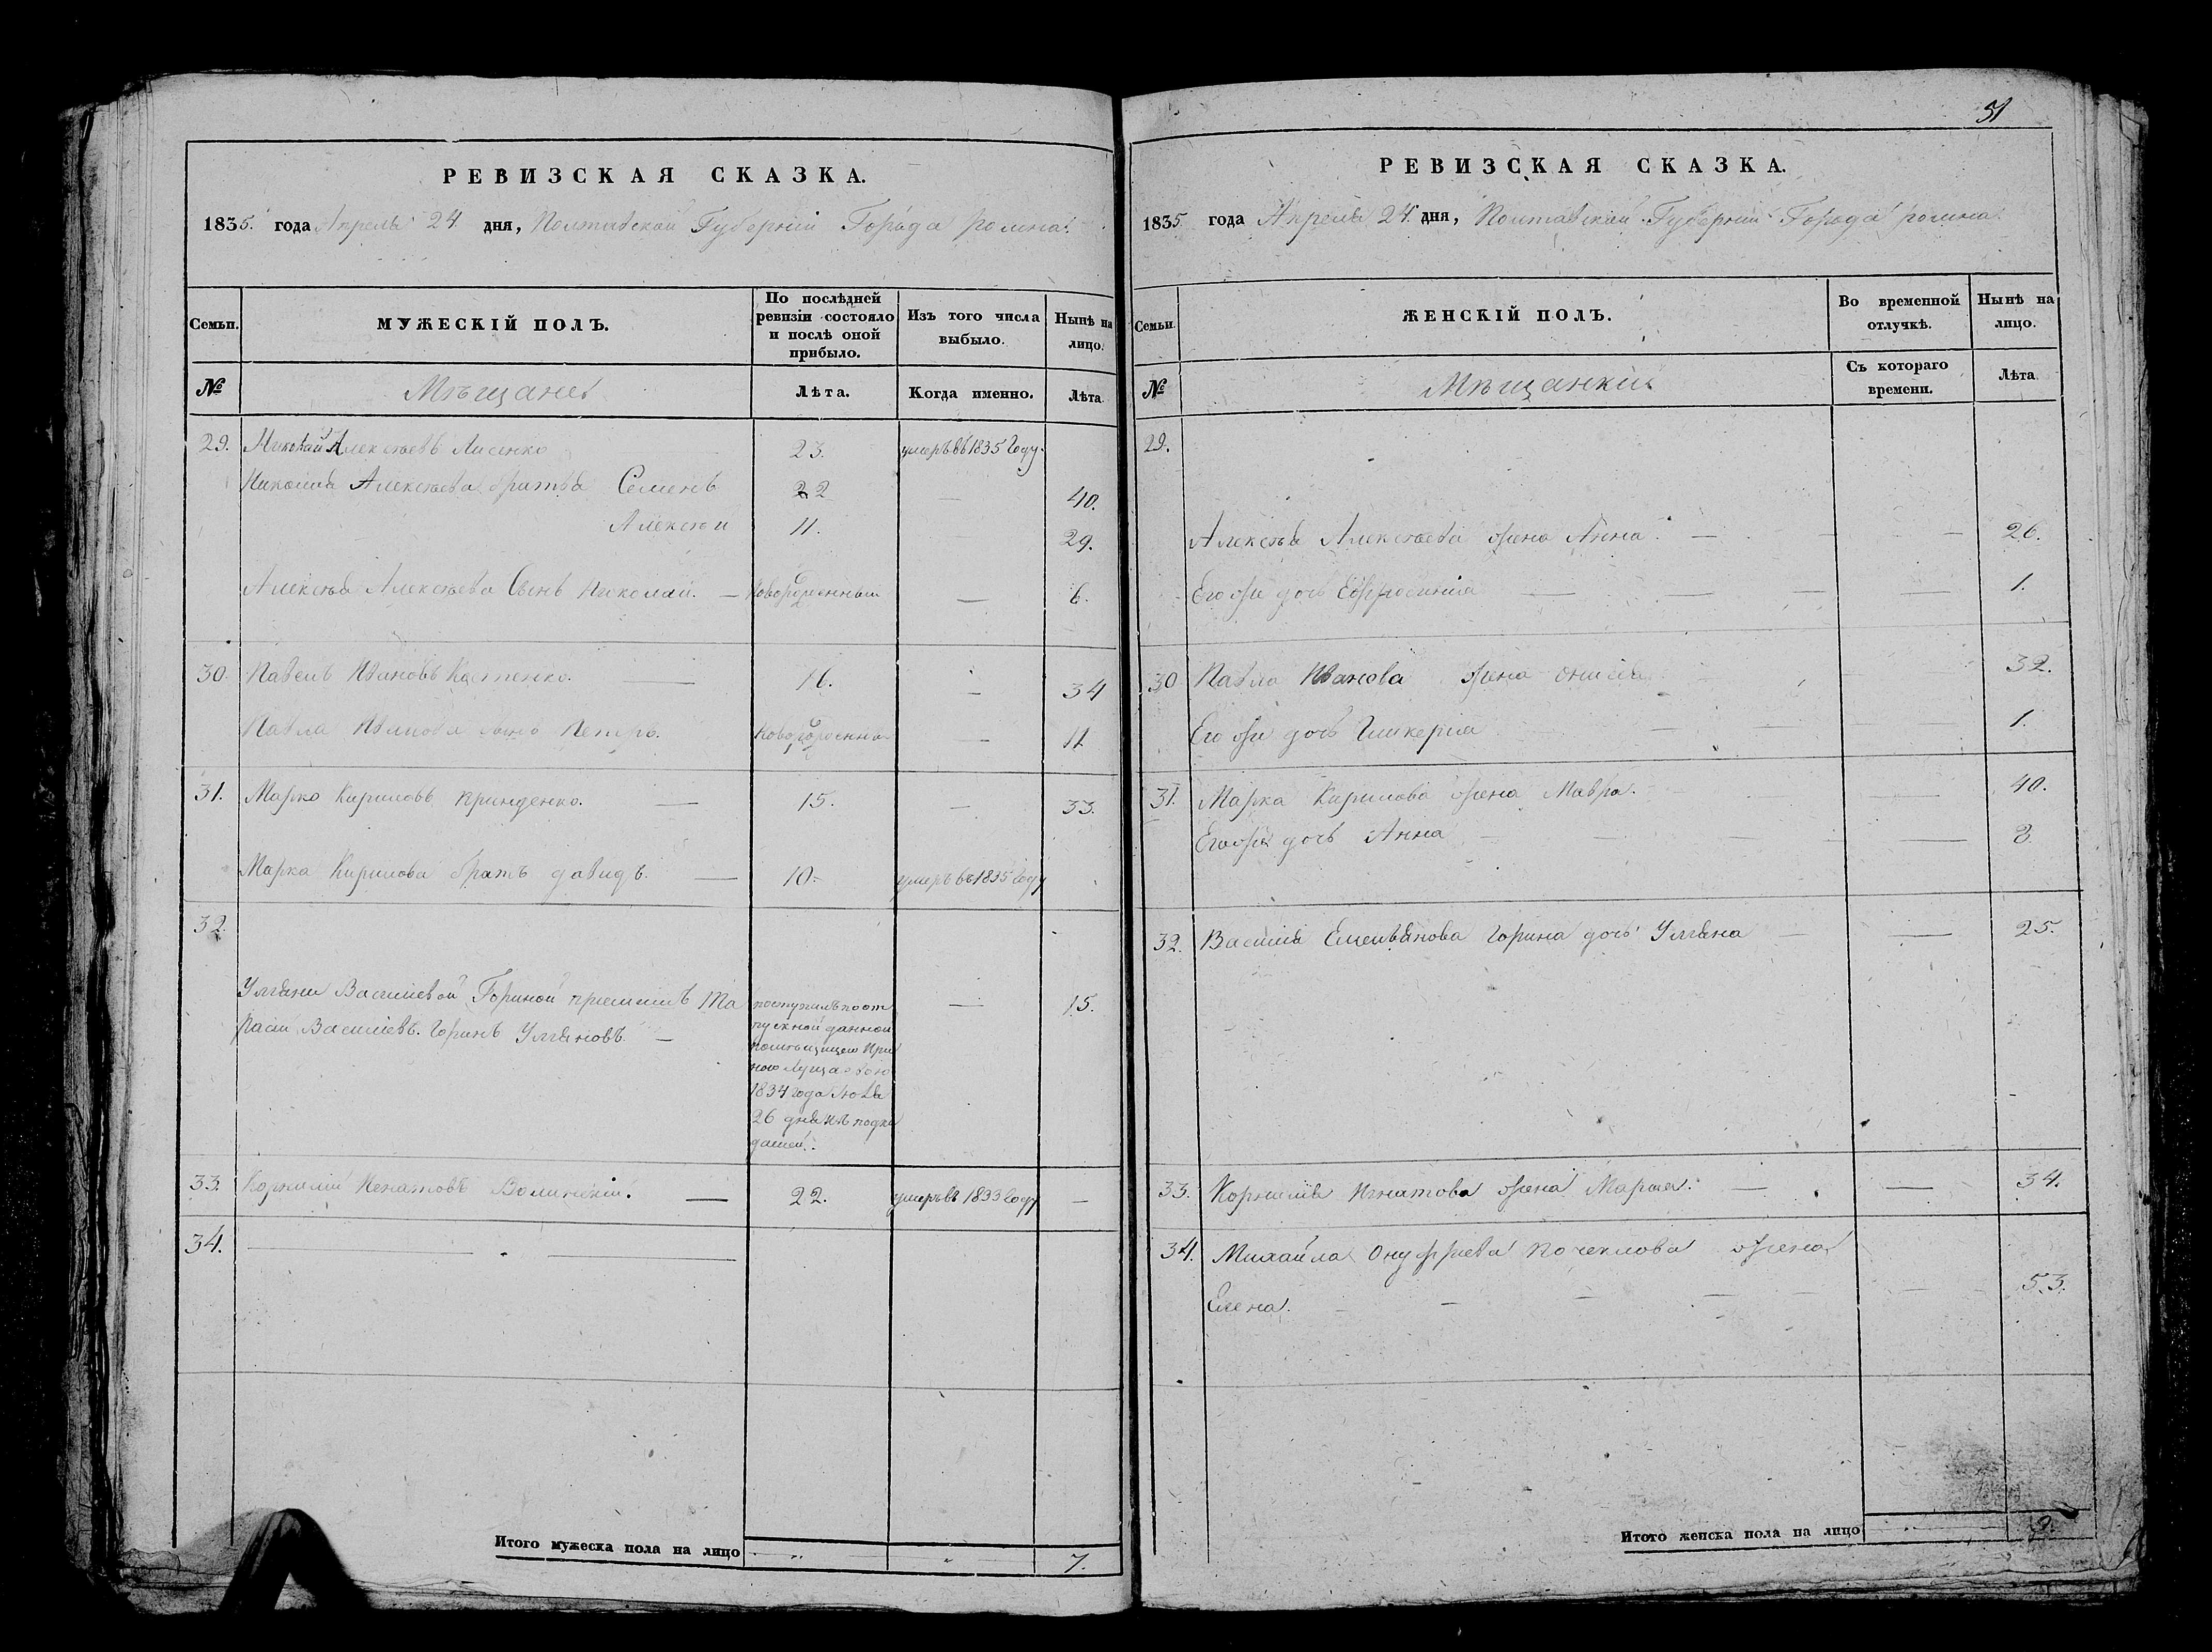 РЕВИЗСКАЯ СКАЗКА.
1835. года Апреля 24 дня, Полтавской Губерніи Города Ромна.
Семьи.
МУЖЕСКІЙ ПОЛЪ.
По послѣдней ревизіи состояло и послѣ оной прибыло.
Изъ того числа выбыло.
Нынѣ на лицо.
№
Мѣщане
Лѣта.
Когда именно.
Лѣта
29. Николай Алексѣевъ Лисенко 23. умеръ въ 1835 Году.
Николая Алексѣева братья Семенъ 22 — 40.
Алексѣй 11. 29.
Алексѣя Алексѣева Сынъ Николай. — Новорожденный — 6.
30. Павелъ Ивановъ — — 34
Павла Иванова сынъ Петръ. Новорожденный — 11
31. Марко Кириловъ — 15. — 33.
Марка Кирилова братъ давидъ. — 10. умеръ въ 1835 Году
32.
Ульяни Васильевой Гориной приемишъ Та
расій Васильевъ. Горинъ Ульяновъ. —
поступилъ по от
пускной данной
помѣщицею Ири
ною
1834 года Июля
26 дня изъ подка
дашей.
— 15.
33. Корнилій Игнатовъ Волинскій. — 22. умеръ въ 1833 Году —
34. —
Итого мужеска пола на лицо „ „ 7.
51
РЕВИЗСКАЯ СКАЗКА.
1835 года Апреля 24. дня, Полтавской Губерніи Города ромна.
Семьи.
ЖЕНСКІЙ ПОЛЪ.
Во временной отлучкѣ.
Нынѣ на лицо.
№
Мѣщанкі
Съ котораго времени.
Лѣта
29.
Алексѣя Алексѣева жена Анна. — 26.
Его же дочь Ефросинія — 1.
30 Павла Иванова жена 32.
Его же дочь Гликерія 1.
31. Марка Кирилова жена Мавра. 40.
Его же дочь Анна — 3.
32. Василія Емельянова Горина дочь Ульяна — 25.
33. Корнилія Игнатова жена Марья. — 34.
34. Михайла Онуфріева жена
Елена. — 53.
Итого женска пола на лицо 9.